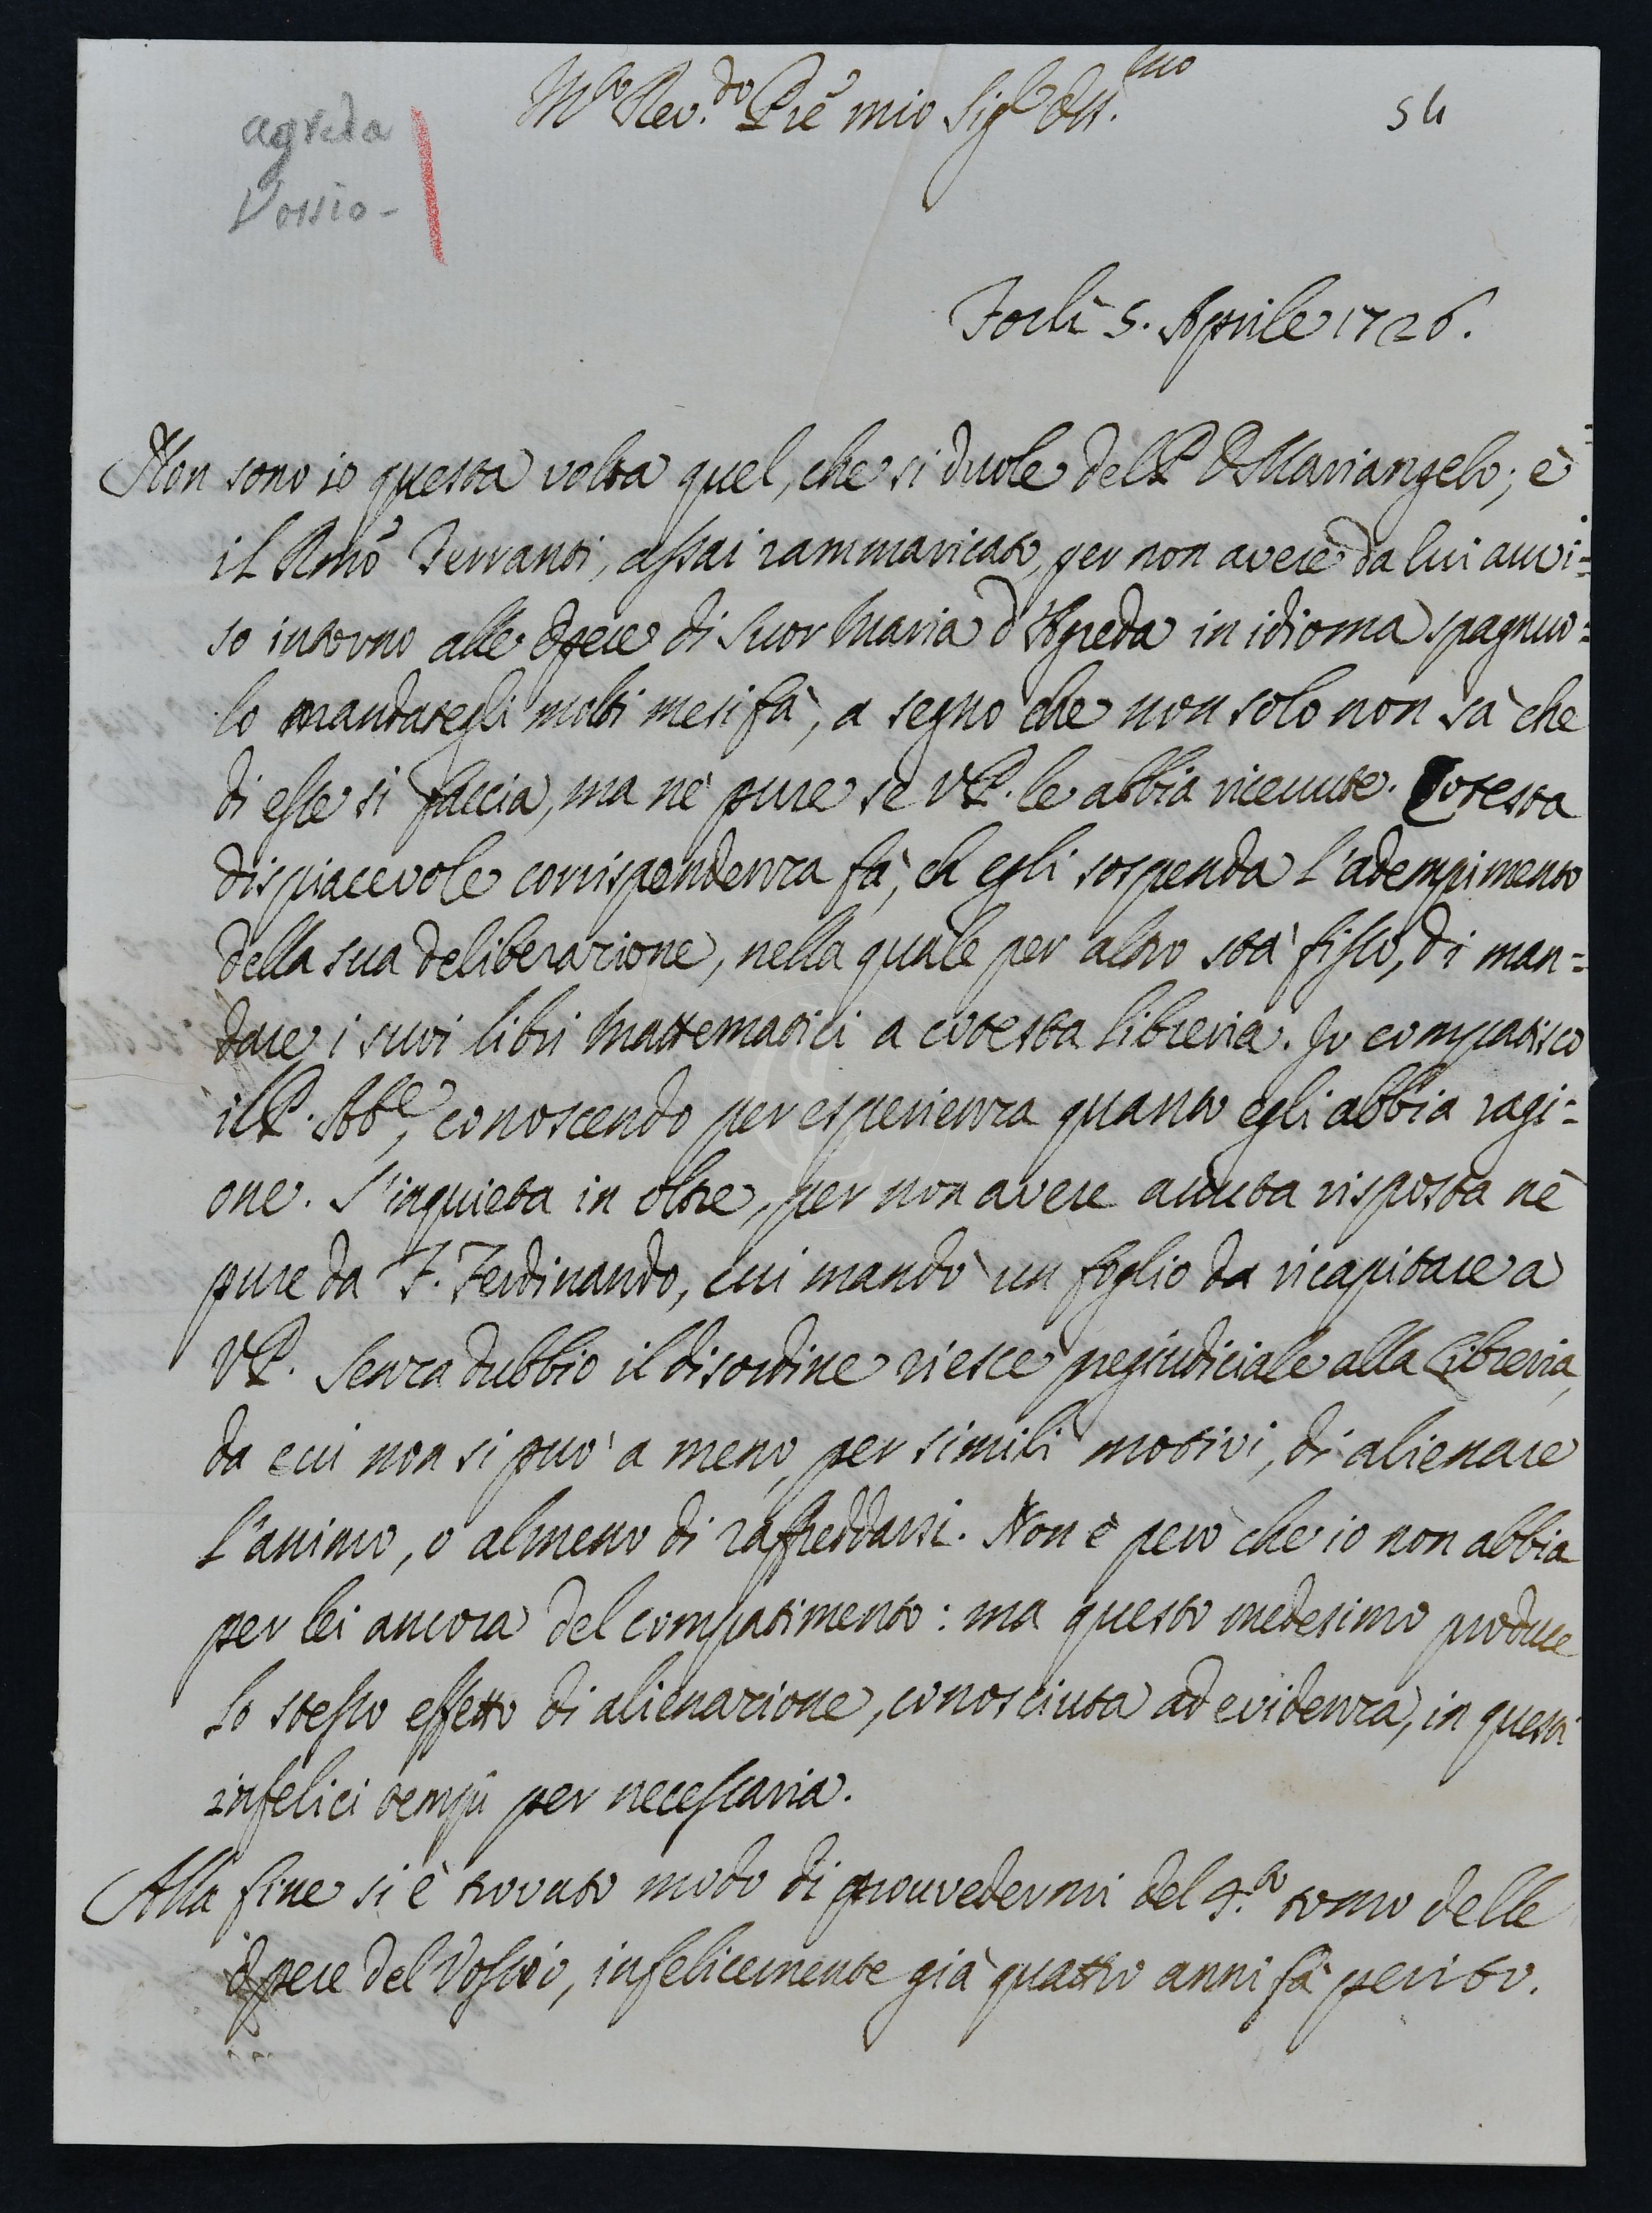 M.to Rev.do Pre mio Sig.r Oss.mo
54
agreda
Vossio -
Forlì 5. Aprile 1726.
Non sono io questa volta quel, che si duole del P. D. Mariangelo; è
il Rmo Ferranti, assai rammaricato, per non avere da lui avvi=
so intorno alle Opere di Suor Maria d'Agreda in idioma spagnuo=
lo mandategli molti mesi fà, a segno che non solo non sà che
di esse si faccia, ma nè pure se V.P. le abbia ricevute. Cotesta
dispiacevole corrispondenza fà, ch egli sospenda l'adempimento
della sua deliberazione, nella quale per altro stà fisso, di man=
dare i suoi libri Mattematici a cotesta libreria. Io compatisco
il P. Abb.e, conoscendo per esperienza quanto egli abbia ragi=
one. S'inquieta in oltre, per non avere avuta risposta nè
pure da F. Ferdinando, cui mandò un foglio da ricapitare a
V.P. Senza dubbio il disordine riesce pregiudiciale alla Libreria,
da cui non si può a meno, per simili motivi, di alienare
l'animo, o almeno di raffreddarsi. Non è però che io non abbia
per lei ancora del compatimento: ma questo medesimo produce
lo stesso effetto di alienazione, conosciuta ad evidenza, in questi
infelici tempii per necessaria.
Alla fine si è trovato modo di provvedermi del 4.to tomo delle
Opere del Vossio, infelicemente già quattro anni fà perito.